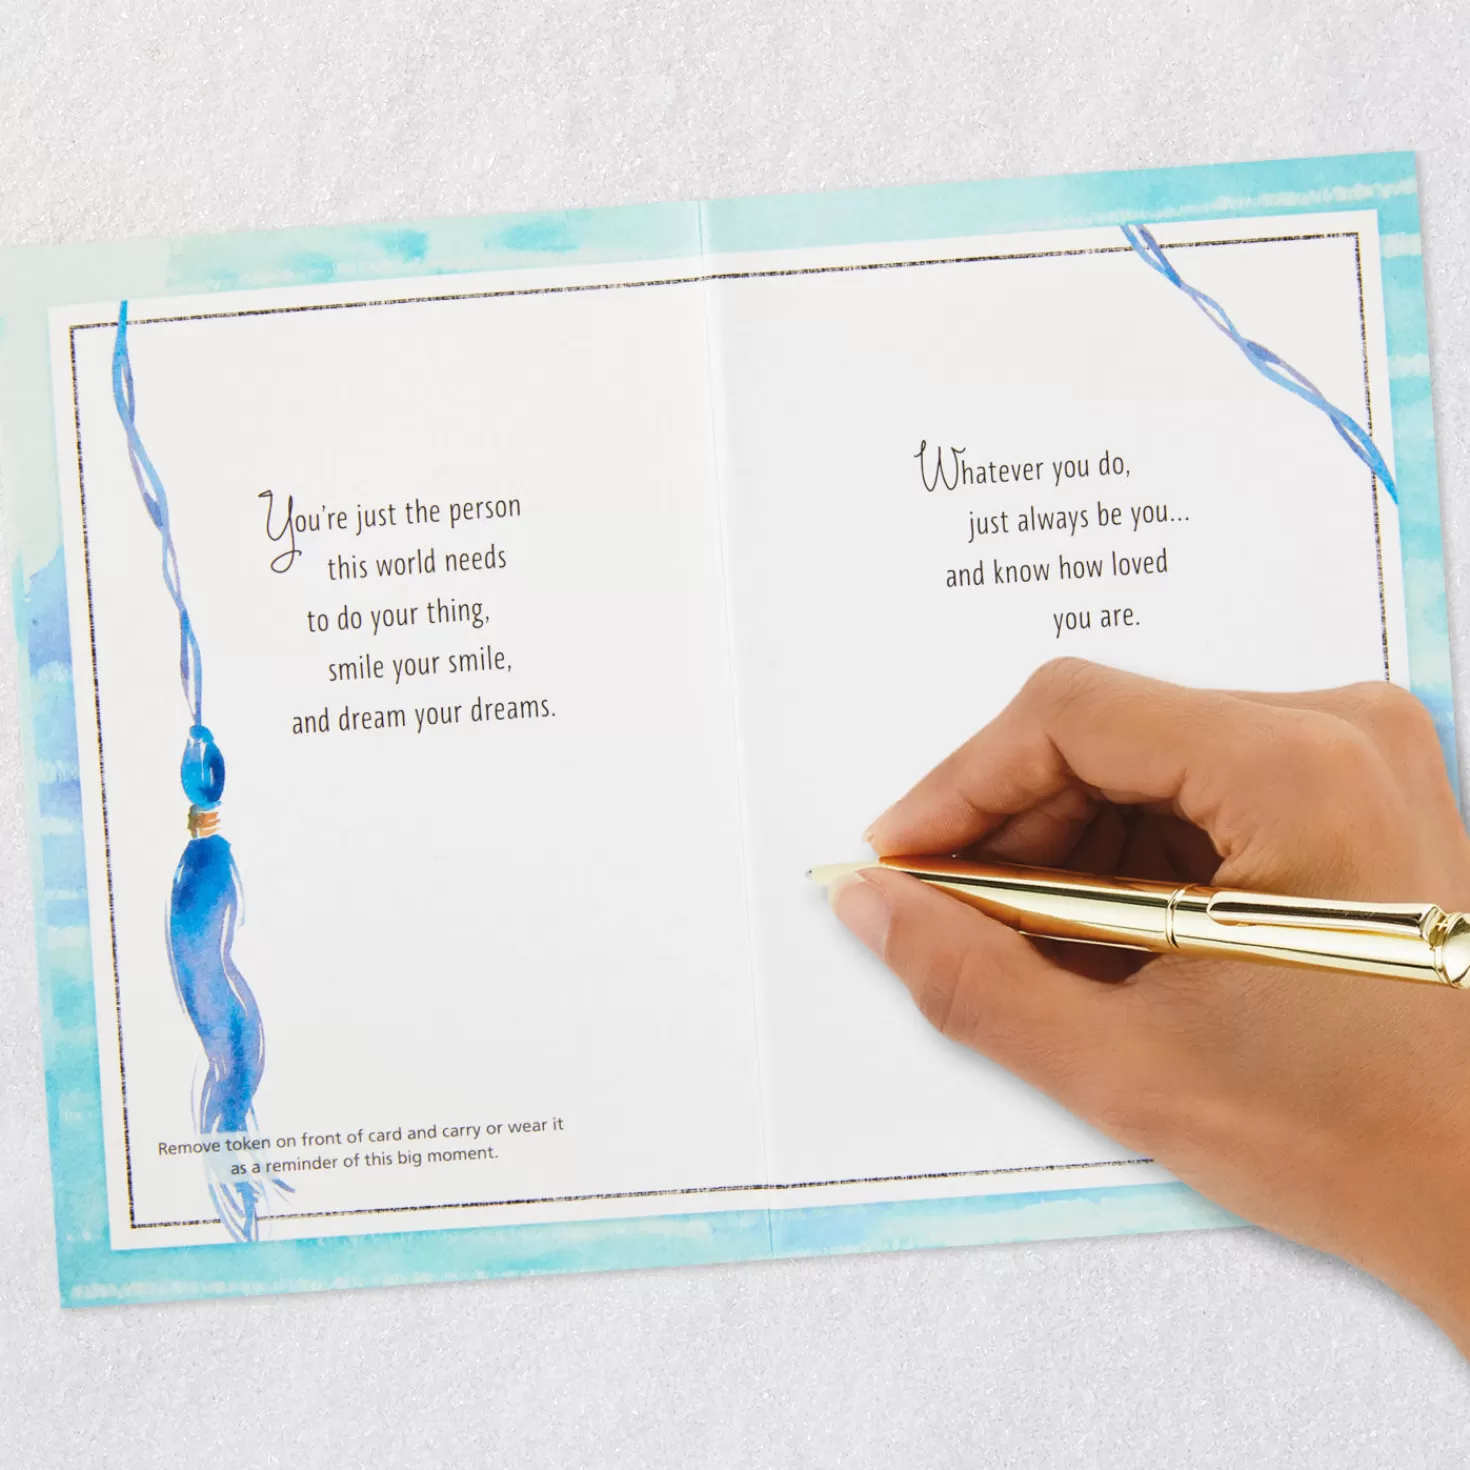 You're just the person
this world needs
to do your thing,
smile your smile,
and dream your dreams.
Remove token on front of card and carry or wear it
as a reminder of this big moment.
Whatever you do,
just always be you...
and know how loved
you are.